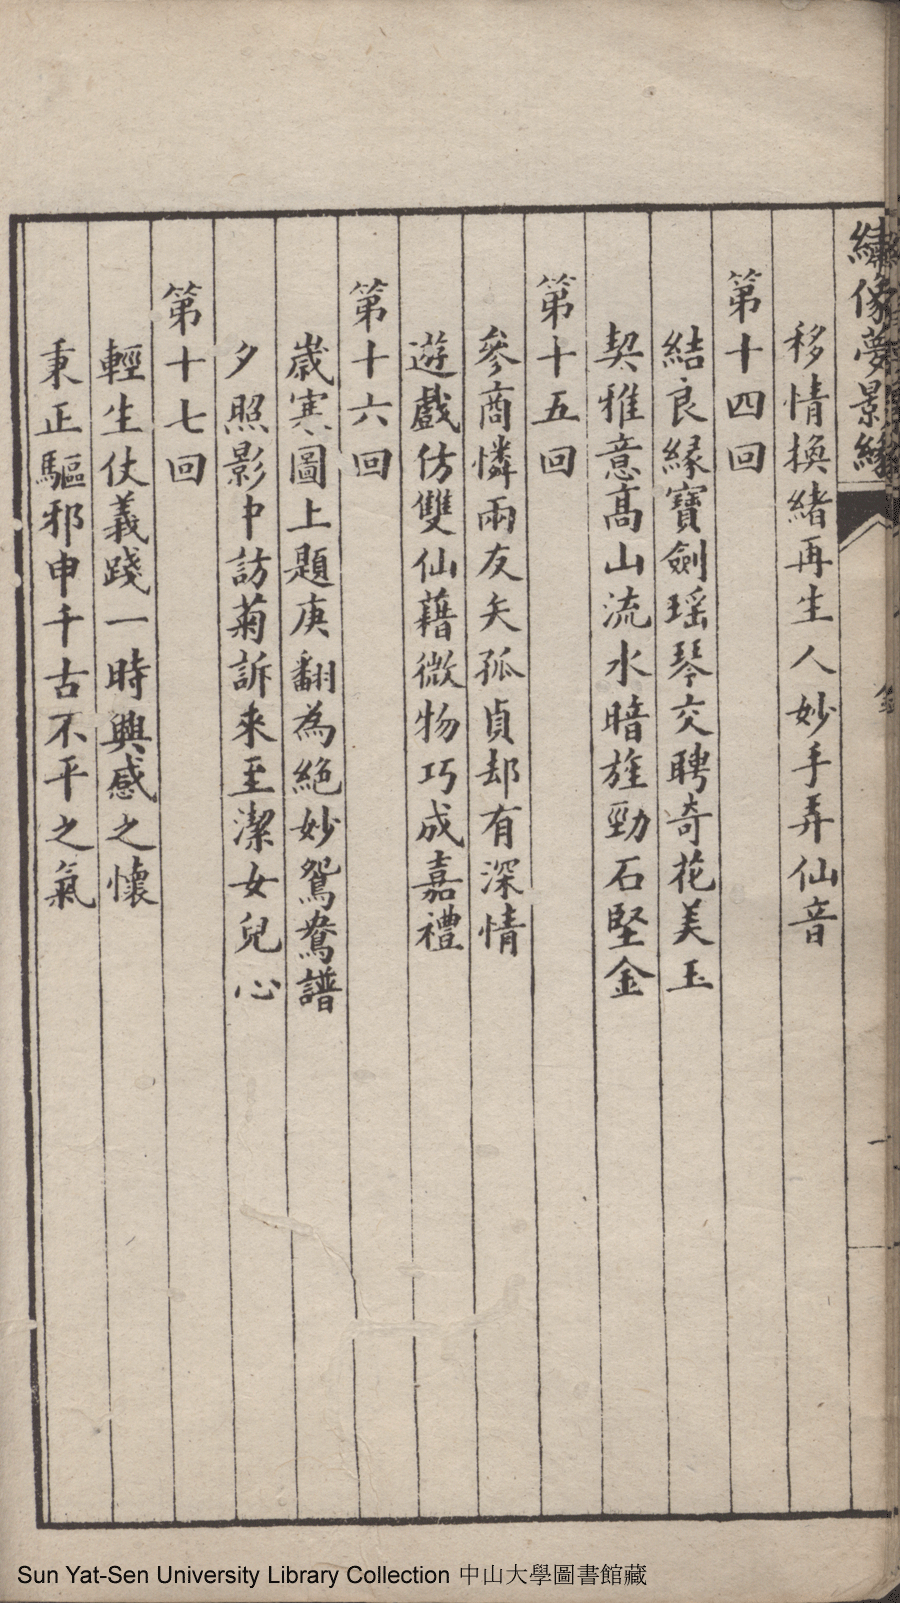 繡像夢景緣
移情換緒再生人妙手弄仙音
第十四回
結良緣寶劍瑶琴交聘奇花美玉
契雅意高山流水暗旌勁石堅金
第十五回
參商憐兩友矢孤貞却有深情
遊戲仿雙仙藉微物巧成嘉禮
第十六回
歲寒圖上題庚翻為絕妙鴛鴦譜
夕照影中訪菊訴来至潔女兒心
第十七回
輕生仗義踐一時興感之懷
秉正驅邪申千古不平之氣
Sun Yat-Sen University Library Collection 中山大學圖書館藏